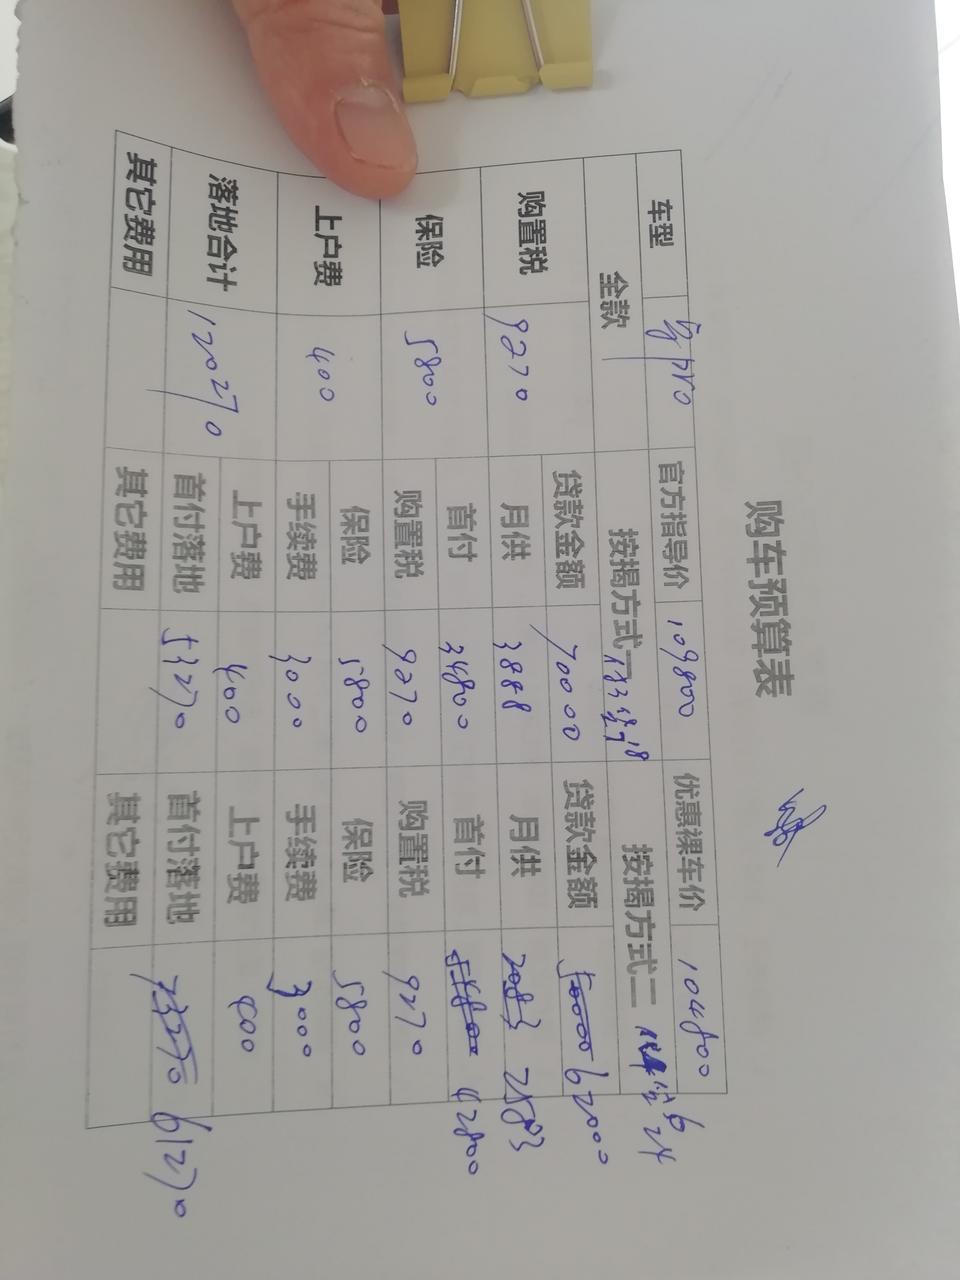 购车预算表
车型 官方指导价 109800 优惠裸车价 104800
全款 按揭方式一 18 按揭方式二 24
购置税 9270 贷款金额 70000 贷款金额 50000 62000
月供 3888 月供 2083 2583
保险 5800 首付 34800 首付 54800 42800
购置税 9270 购置税 9270
上户费 400 保险 5800 保险 5800
手续费 3000 手续费 3000
落地合计 120270 上户费 400 上户费 400
首付落地 53270 首付落地 73270 61270
其它费用 其它费用 其它费用